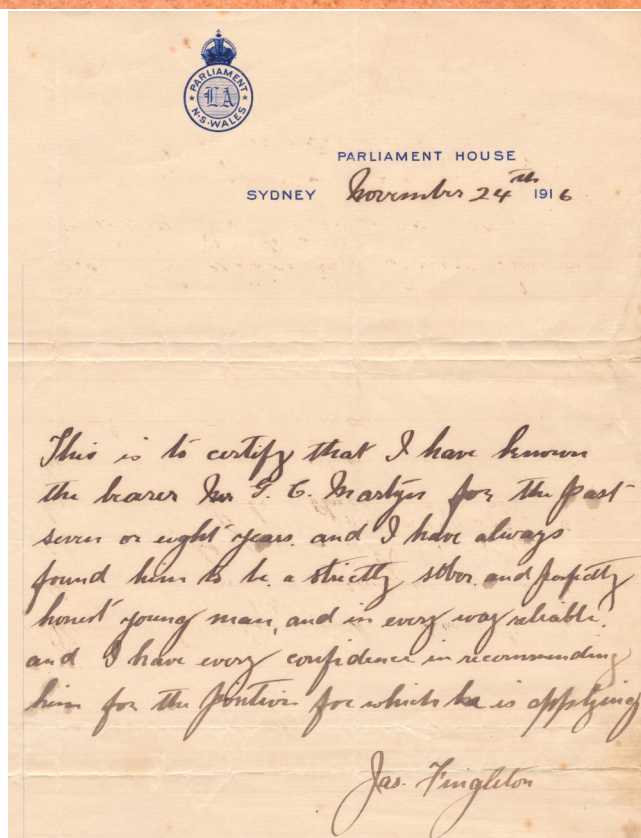 PARLIAMENT
LA
N·S·WALES
PARLIAMENT HOUSE
SYDNEY November 24th 1916
This is to certify that I have known
the bearer Mr G. C. Martyn for the past
seven or eight years. and I have always
found him to be a strictly sober. and perfectly
honest young man, and in every way reliable.
and I have every confidence in recommending
him for the position for which he is applying
Jas. Fingleton